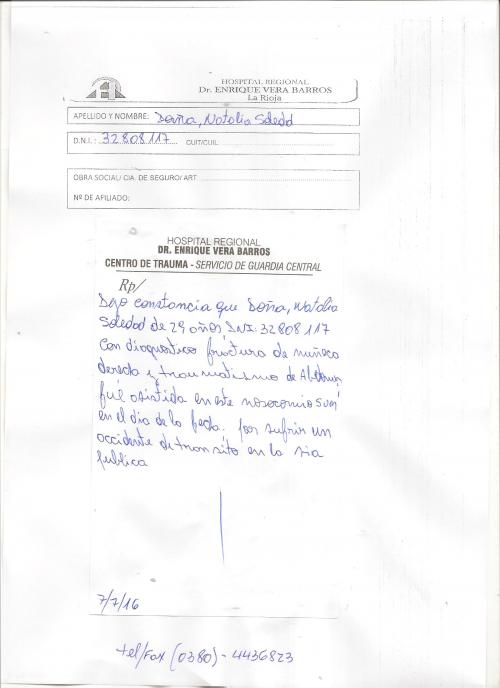 HOSPITAL REGIONAL
Dr. ENRIQUE VERA BARROS
La Rioja
APELLIDO Y NOMBRE: Doña, Natalia Soledad
D.N.I.: 32808117 CUIT/CUIL:
OBRA SOCIAL/ CIA. DE SEGURO/ ART
Nº DE AFILIADO:
HOSPITAL REGIONAL
DR. ENRIQUE VERA BARROS
CENTRO DE TRAUMA - SERVICIO DE GUARDIA CENTRAL
Rp/
Dejo constancia que Doña, Natalia
Soledad de 29 años DNI: 32808117
Con diagnostico fractura de muñeca
derecha y traumatismo de Abdomen,
fué asistida en este nosocomio
en el dia de la fecha. por sufrir un
accidente de transito en la via
publica
7/7/16
tel/Fax (0380) - 4436823